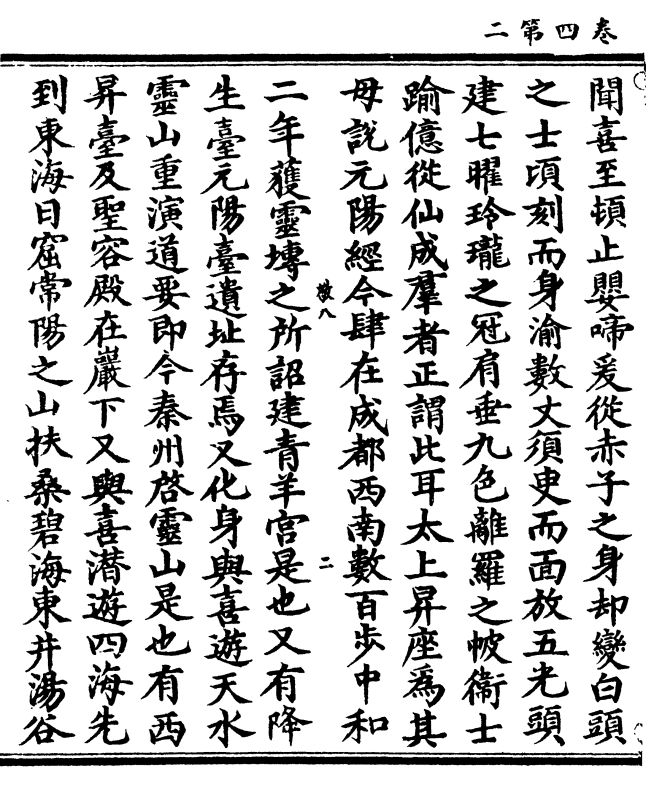 卷四第二
聞喜至頓止嬰啼爰從赤子之身却變白頭
之士頃刻而身渝數丈須臾而面放五光頭
建七曜玲瓏之冠肩垂九色離羅之帔衞士
踰億從仙成羣者正謂此耳太上昇座爲其
母說元陽經今肆在成都西南數百步中和
二年獲靈塼之所詔建青羊宮是也又有降
生臺元陽臺遺址存焉又化身與喜遊天水
靈山重演道要即今秦州啓靈山是也有西
昇臺及聖容殿在巖下又與喜潛遊四海先
到東海日窟常陽之山扶桑碧海東井湯谷
八
二